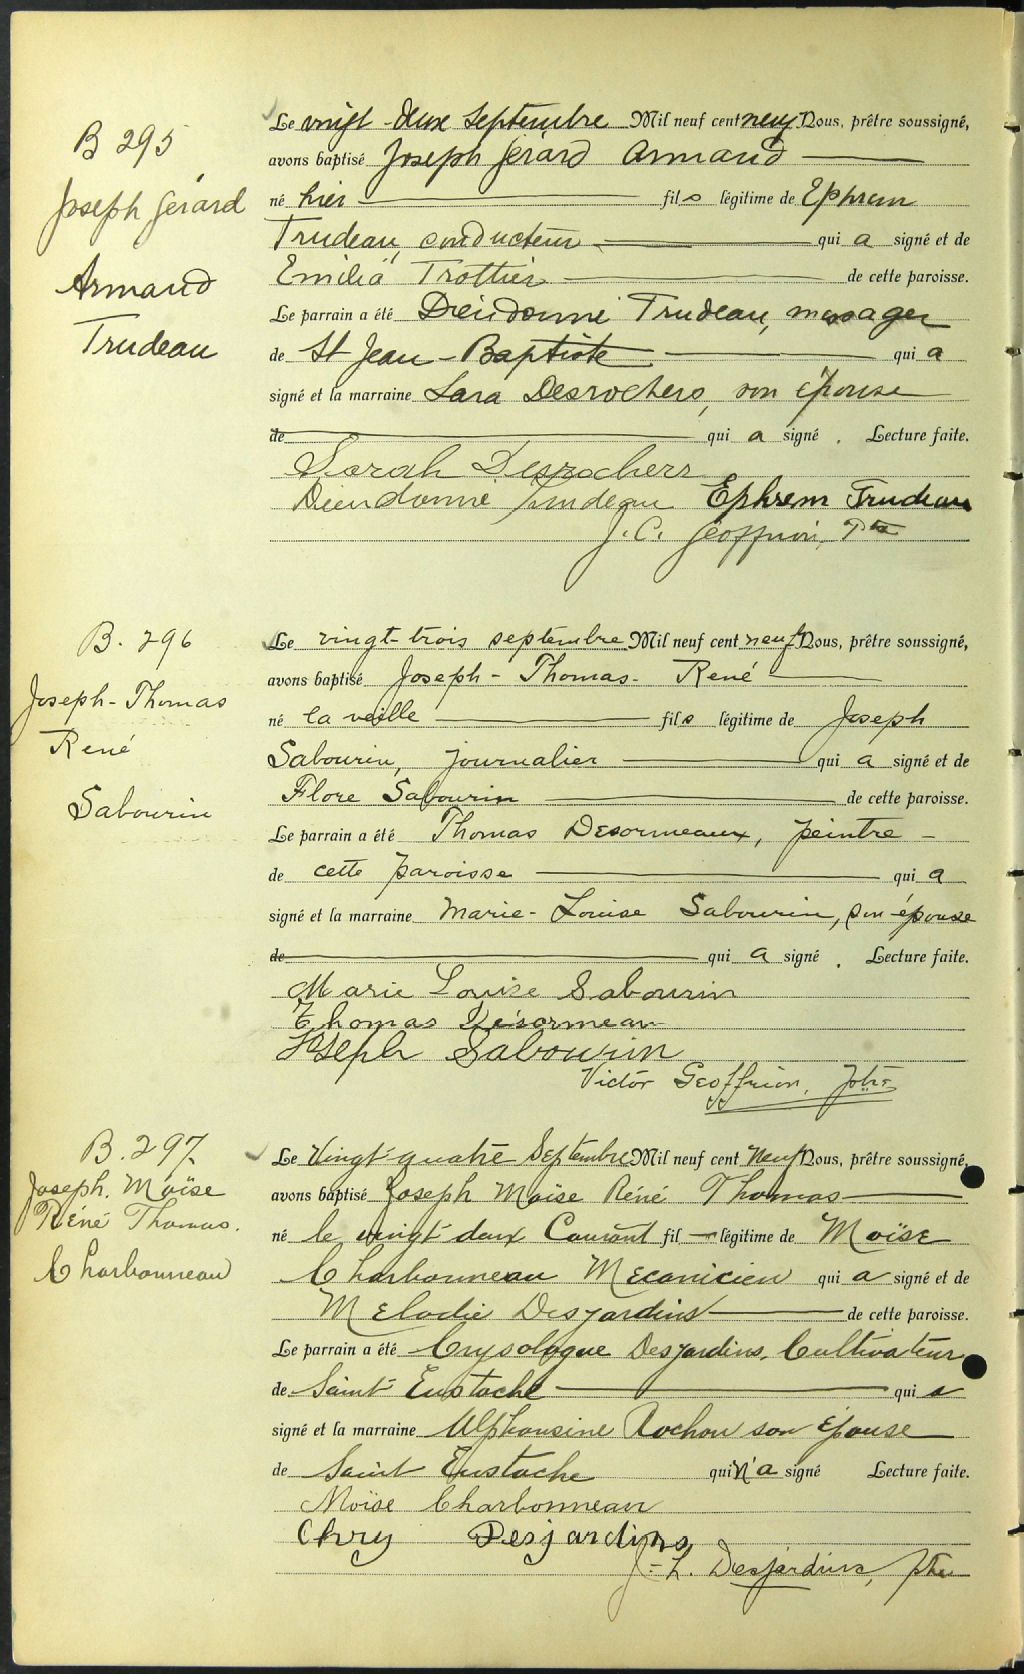 B 295
Joseph Gérard
Armand
Trudeau
Le vingt-deux septembre Mil neuf cent neuf Nous, prêtre soussigné,
avons baptisé Joseph Gérard Armand
né hier fils légitime de Ephrem
Trudeau, conducteur qui a signé et de
Emilia Trottier de cette paroisse.
Le parrain a été Dieudonné Trudeau, messager
de St Jean-Baptiste qui a
signé et la marraine Sara Desrochers, son épouse
de qui a signé. Lecture faite.
Sarah Desrochers
Dieudonné Trudeau Ephrem Trudeau
J. C. Geoffrion, Ptre
B. 296
Joseph-Thomas
René
Sabourin
Le vingt-trois septembre Mil neuf cent neuf Nous, prêtre soussigné,
avons baptisé Joseph-Thomas-René
né la veille fils légitime de Joseph
Sabourin, journalier qui a signé et de
Flore Sabourin de cette paroisse.
Le parrain a été Thomas Desormeaux, peintre
de cette paroisse qui a
signé et la marraine Marie-Louise Sabourin, son épouse
de qui a signé. Lecture faite.
Marie Louise Sabourin
Thomas Désormeau
Joseph Sabourin
Victor Geoffrion, ptre
B. 297
Joseph. Moïse
Réné Thomas.
Charbonneau
Le Vingt quatre Septembre Mil neuf cent Neuf Nous, prêtre soussigné,
avons baptisé Joseph Moïse Réné Thomas
né le vingt deux Courant fil légitime de Moïse
Charbonneau Mecanicien qui a signé et de
Melodie Desjardins de cette paroisse.
Le parrain a été Crysologue Desjardins, Cultivateur
de Saint Eustache qui a
signé et la marraine Alphonsine Rochon son épouse
de Saint Eustache qui n'a signé Lecture faite.
Moïse Charbonneau
Chry Desjardins
J-L. Desjardins, ptre